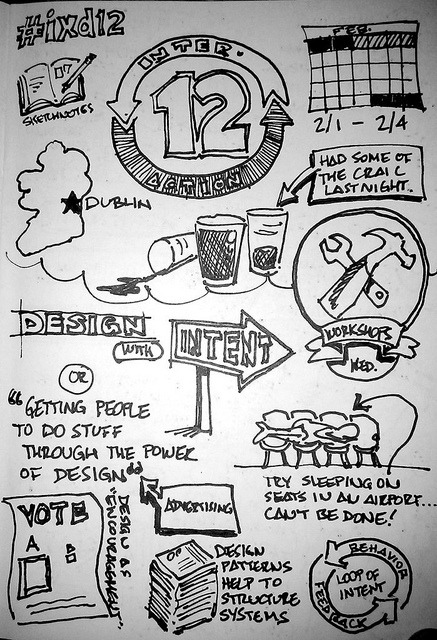 #ixd12
SKETCHNOTES
INTER.
12
ACTION
FEB.
2/1 - 2/4
DUBLIN
HAD SOME OF
THE CRAIC
LAST NIGHT.
WORKSHOPS
WED.
DESIGN
WITH
INTENT
OR
"GETTING PEOPLE
TO DO STUFF
THROUGH THE POWER
OF DESIGN"
ADVERTISING
TRY SLEEPING ON
SEATS IN AN AIRPORT...
CAN'T BE DONE!
VOTE
A
B
DESIGN AS
"ENCOURAGEMENT"
DESIGN
PATTERNS
HELP TO
STRUCTURE
SYSTEMS
BEHAVIOR
LOOP OF
INTENT
FEEDBACK